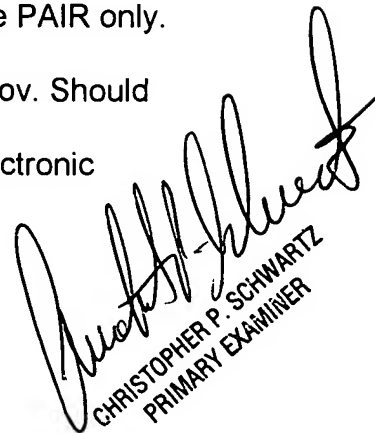 e PAIR only.
ov. Should
ctronic
CHRISTOPHER P. SCHWARTZ
PRIMARY EXAMINER